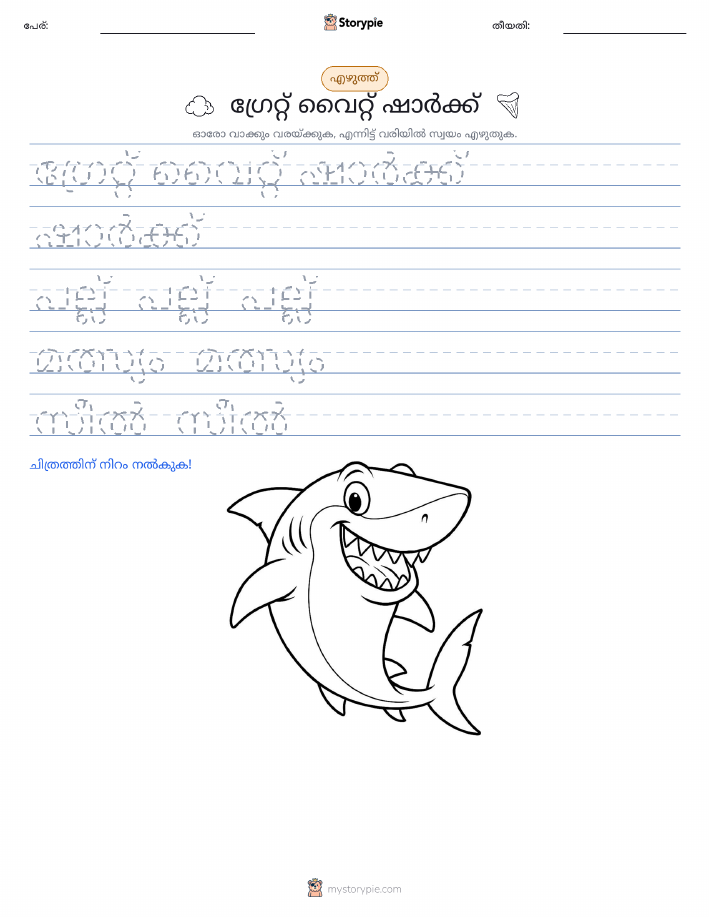 പേര്:
Storypie
തീയതി:
എഴുത്ത്
ഗ്രേറ്റ് വൈറ്റ് ഷാർക്ക്
ഓരോ വാക്കും വരയ്ക്കുക, എന്നിട്ട് വരിയിൽ സ്വയം എഴുതുക.
ഗ്രേറ്റ് വൈറ്റ് ഷാർക്ക്
ഷാർക്ക്
പല്ല് പല്ല് പല്ല്
മത്സ്യം മത്സ്യം
സീൽ സീൽ
ചിത്രത്തിന് നിറം നൽകുക!
mystorypie.com